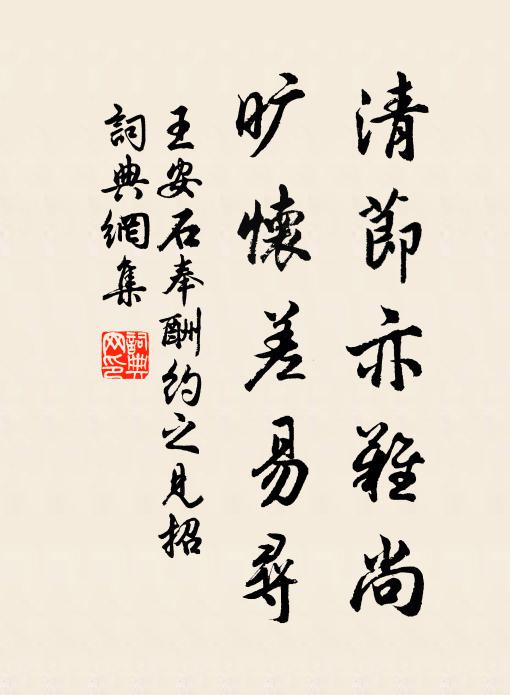 清節亦難尚
旷懷差易尋
王安石奉酬約之見招
詞典網集
詞典
网印